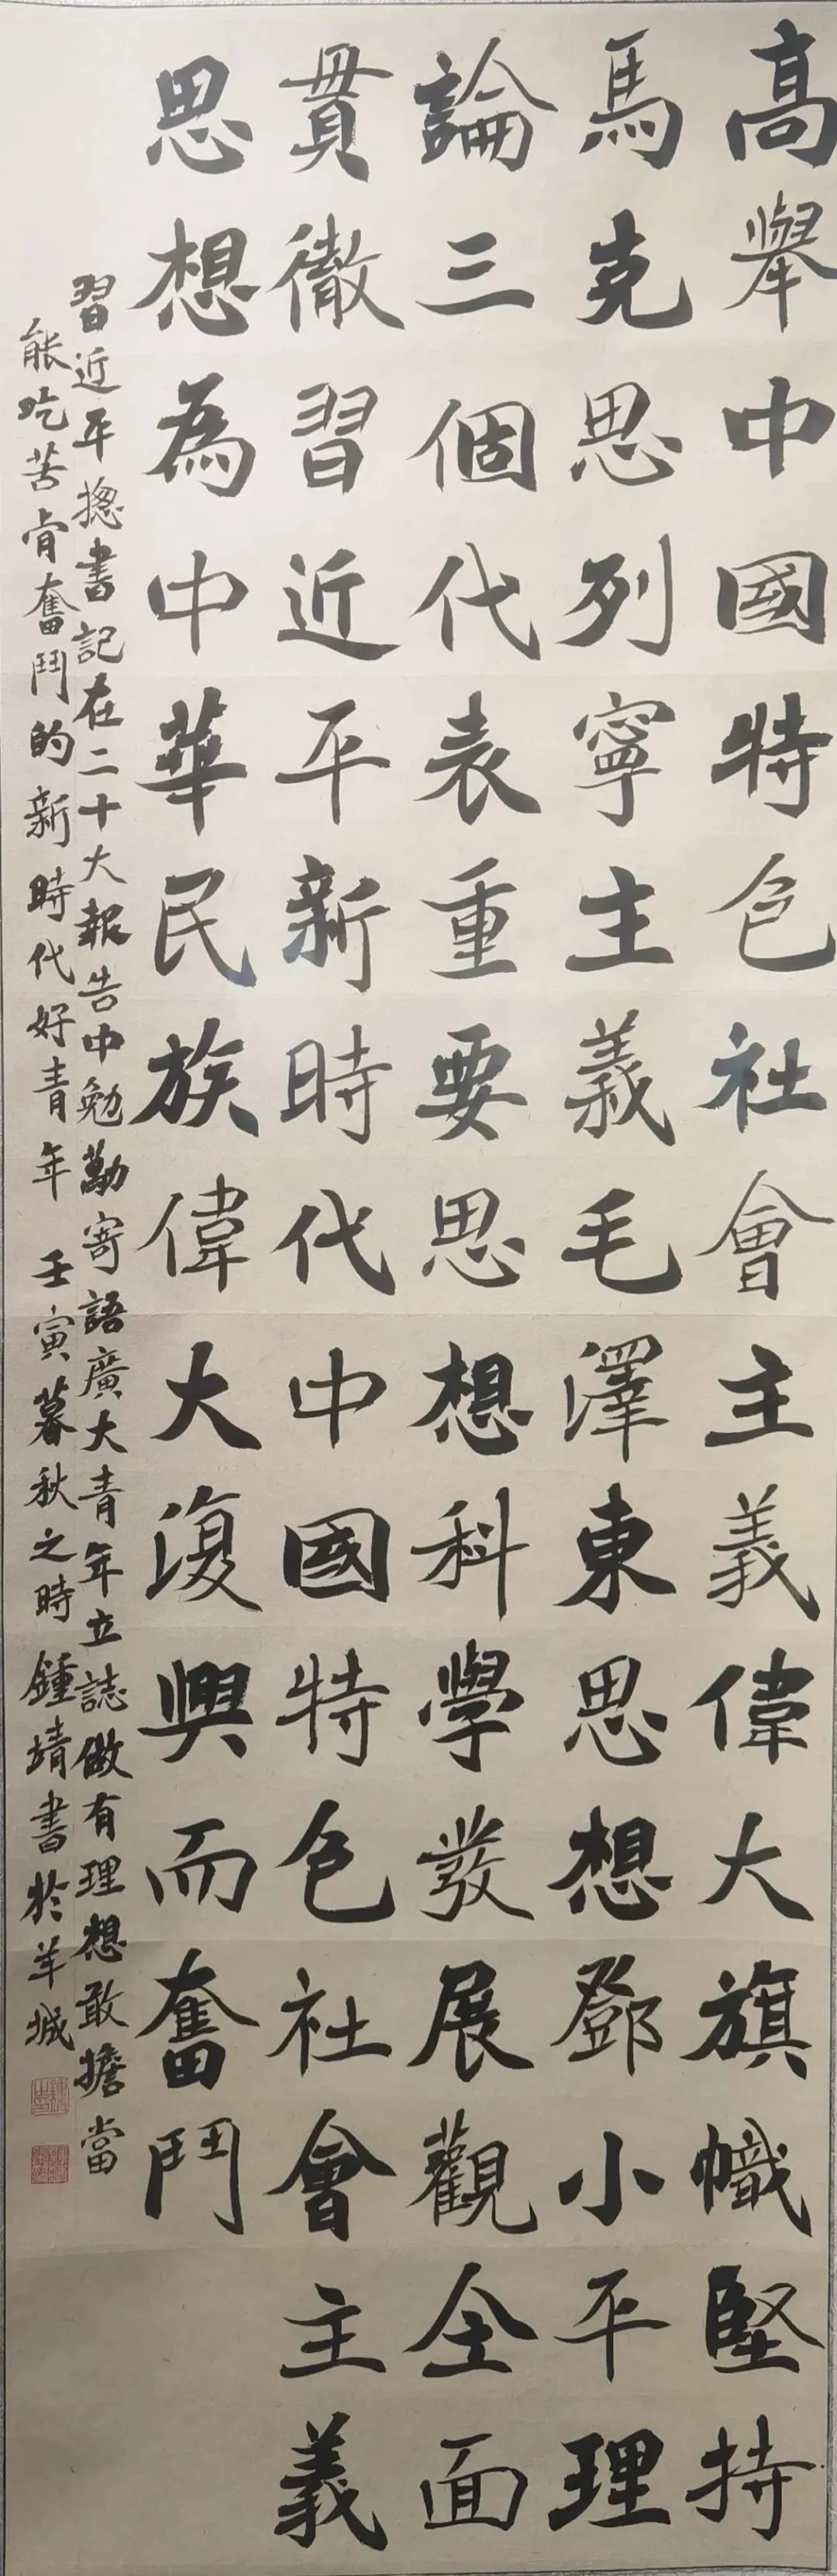 高舉中國特色社會主義偉大旗幟堅持
馬克思列寧主義毛澤東思想鄧小平理
論三個代表重要思想科學發展觀全面
貫徹習近平新時代中國特色社會主義
思想為中華民族偉大復興而奮鬥
習近平揔書記在二十大報告中勉勵寄語廣大青年立誌做有理想敢擔當
能吃苦肯奮鬥的新時代好青年 壬寅暮秋之時鍾靖書於羊城